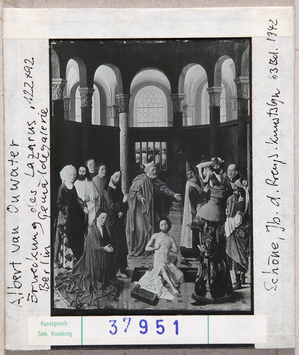 Albert van Ouwater
Erweckung des Lazarus, 122x92
Berlin Gemäldegalerie
Schöne, Jb. d. Preuß. Kunstslgn 63 Bd. 1942
Kunstgesch.
Sem. Hamburg
37951